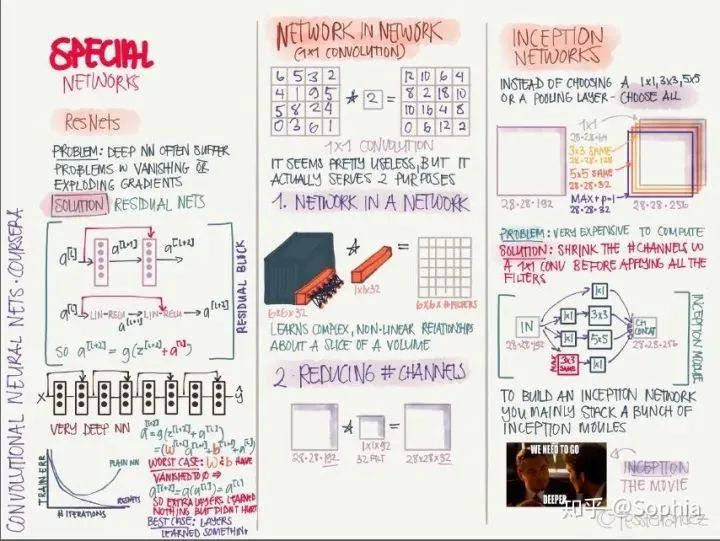 CONVOLUTIONAL NEURAL NETS · COURSERA
SPECIAL
NETWORKS
ResNets
PROBLEM: DEEP NN OFTEN SUFFER
PROBLEMS W VANISHING OR
EXPLODING GRADIENTS
SOLUTION RESIDUAL NETS
a[l] a[l+1] a[l+2]
a[l] LIN-RELU LIN-RELU a[l+2]
a[l+1]
SO a[l+2] = g(z[l+2] + a[l])
RESIDUAL BLOCK
X ŷ
VERY DEEP NN
TRAIN ERR
PLAIN NN
RESNETS
# ITERATIONS
a[l+2] = g(z[l+2] + a[l])
= (W[l+2] a[l+1] + b[l+2] + a[l])
WORST CASE: W & b HAVE
VANISHED TO 0 ⇒
a[l+2] = g(a[l]) = a[l]
SO EXTRA LAYERS LEARNED
NOTHING BUT DIDNT HURT
BEST CASE: LAYERS
LEARNED SOMETHING
NETWORK IN NETWORK
(1x1 CONVOLUTION)
6 5 3 2 12 10 6 4
4 1 9 5 * 2 = 8 2 18 10
5 8 2 4 10 16 4 8
0 3 6 1 0 6 12 2
1x1 CONVOLUTION
IT SEEMS PRETTY USELESS, BUT IT
ACTUALLY SERVES 2 PURPOSES
1. NETWORK IN A NETWORK
* =
6x6x32 1x1x32 6x6x # FILTERS
LEARNS COMPLEX, NON-LINEAR RELATIONSHIPS
ABOUT A SLICE OF A VOLUME
2. REDUCING # CHANNELS
* =
28·28·192 1x1x192 28x28x32
32 FILT
INCEPTION
NETWORKS
INSTEAD OF CHOOSING A 1x1, 3x3, 5x5
OR A POOLING LAYER - CHOOSE ALL
1x1
28·28·64
3x3 SAME
28·28·128
5x5 SAME
28·28·32
MAX + P=1
28·28·32
28·28·192 28·28·256
PROBLEM: VERY EXPENSIVE TO COMPUTE
SOLUTION: SHRINK THE # CHANNELS W
A 1x1 CONV BEFORE APPLYING ALL THE
FILTERS
1x1
IN 1x1 3x3 CH CONCAT
28·28·192 1x1 5x5 28·28·256
3x3 SAME 1x1
INCEPTION MODULE
TO BUILD AN INCEPTION NETWORK
YOU MAINLY STACK A BUNCH OF
INCEPTION MOULES
WE NEED TO GO
DEEPER
INCEPTION
THE MOVIE
知乎 @Sophia